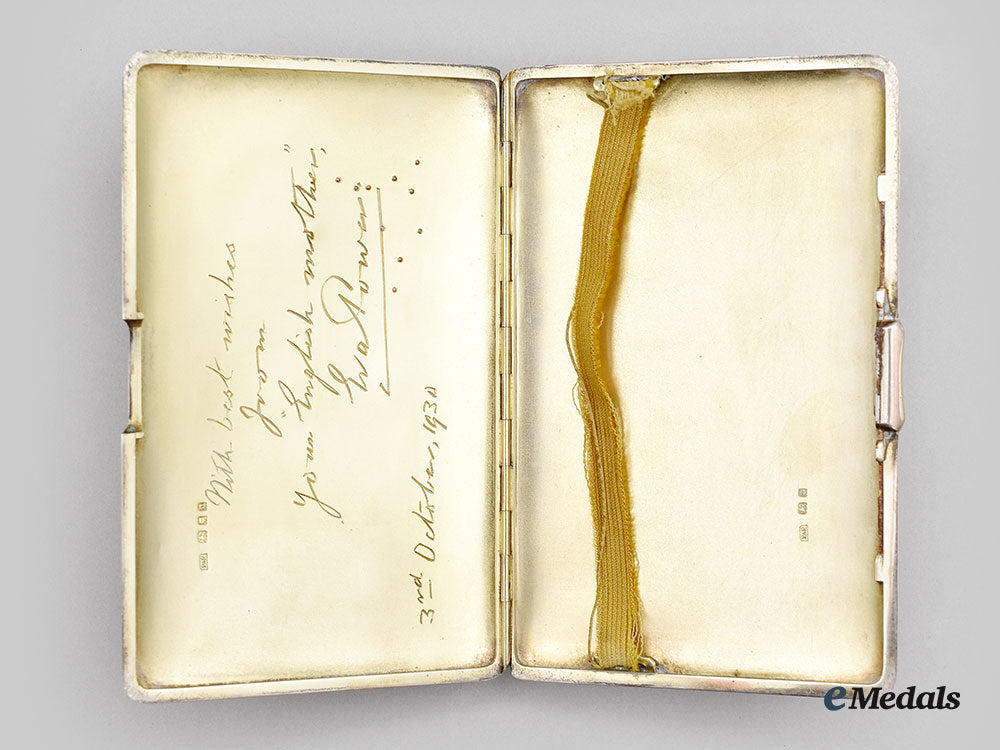 With best wishes
from
"your English mother",
Eva Power
3rd October, 1930
eMedals